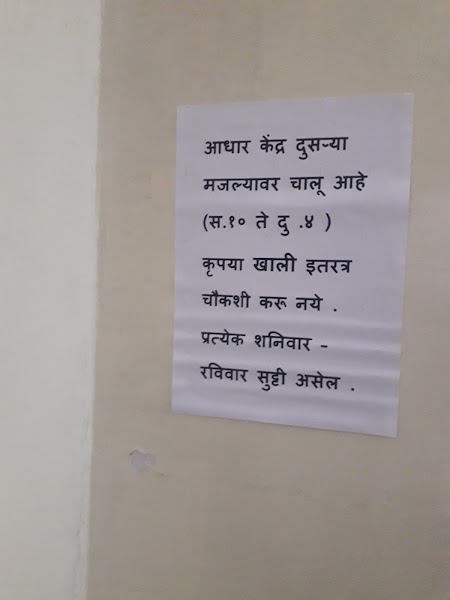 आधार केंद्र दुसऱ्या
मजल्यावर चालू आहे
(स.१० ते दु .४ )
कृपया खाली इतरत्र
चौकशी करू नये .
प्रत्येक शनिवार -
रविवार सुट्टी असेल .